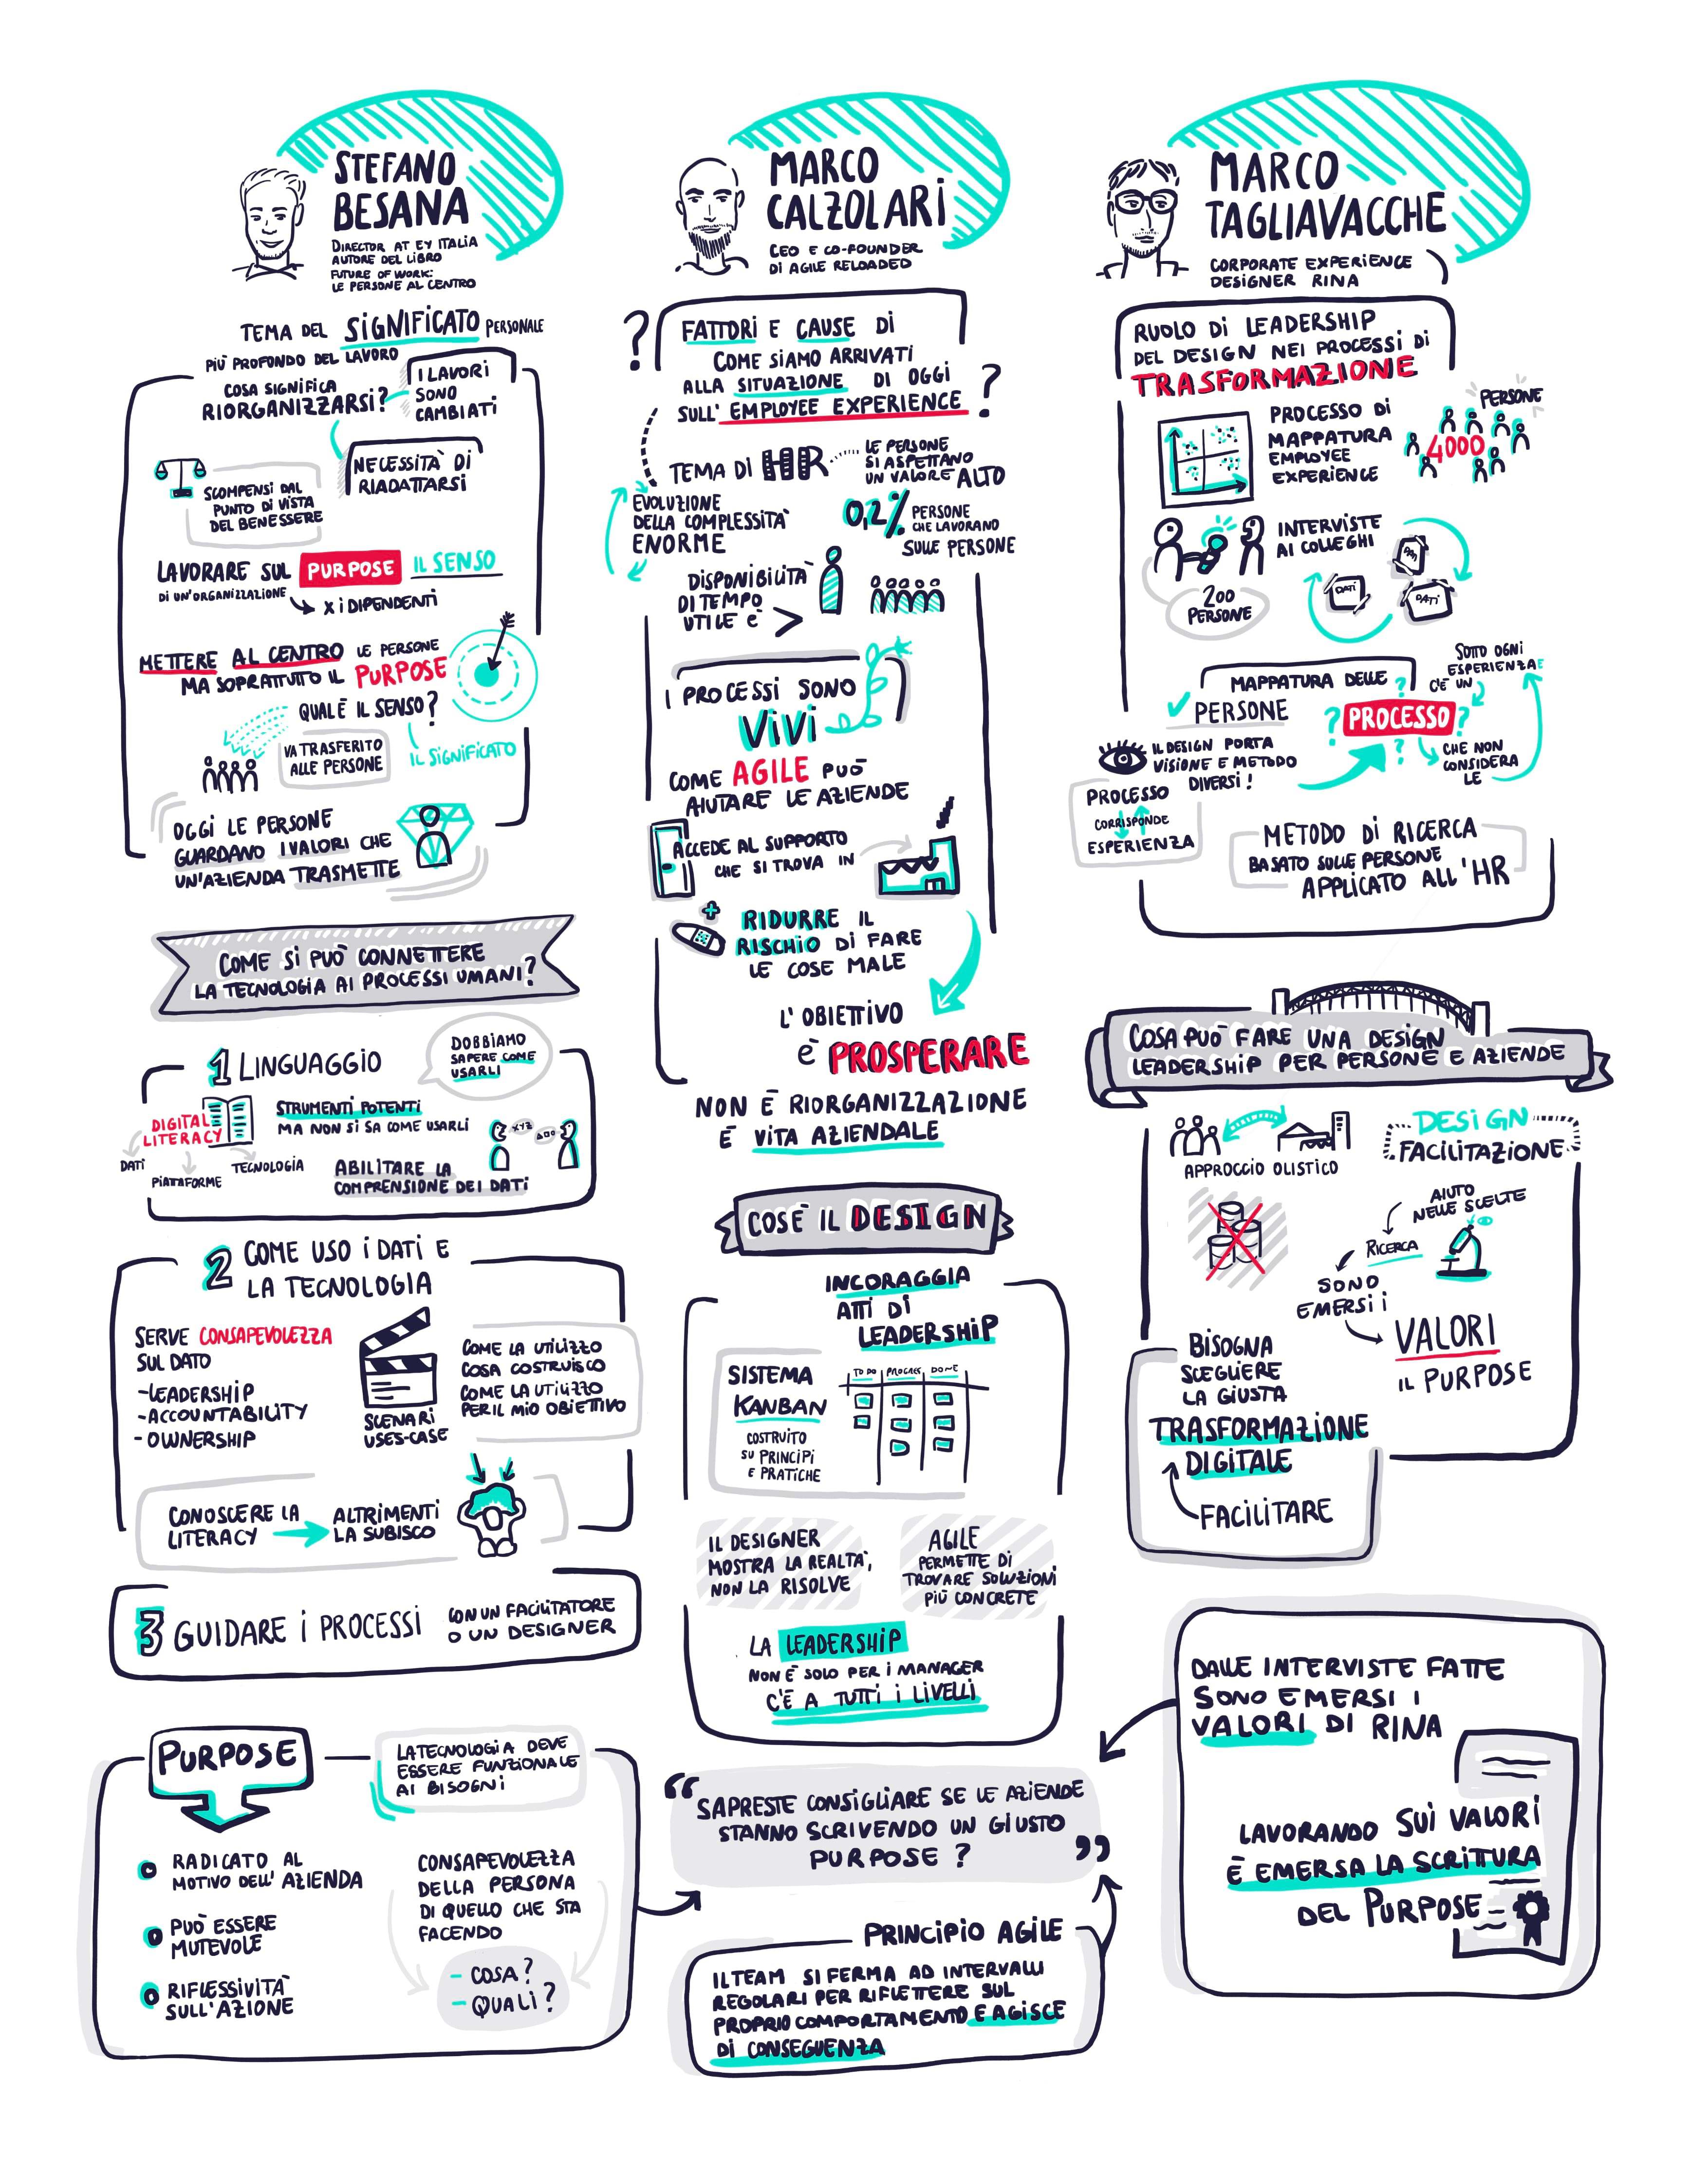 STEFANO
BESANA
DIRECTOR AT EY ITALIA
AUTORE DEL LIBRO
FUTURE OF WORK:
LE PERSONE AL CENTRO
TEMA DEL SIGNIFICATO PERSONALE
PIÙ PROFONDO DEL LAVORO
COSA SIGNIFICA
RIORGANIZZARSI?
I LAVORI
SONO
CAMBIATI
NECESSITÀ DI
RIADATTARSI
SCOMPENSI DAL
PUNTO DI VISTA
DEL BENESSERE
LAVORARE SUL PURPOSE IL SENSO
DI UN'ORGANIZZAZIONE
X I DIPENDENTI
METTERE AL CENTRO LE PERSONE
MA SOPRATTUTTO IL PURPOSE
QUAL È IL SENSO?
VA TRASFERITO
ALLE PERSONE
IL SIGNIFICATO
OGGI LE PERSONE
GUARDANO I VALORI CHE
UN'AZIENDA TRASMETTE
COME SI PUÒ CONNETTERE
LA TECNOLOGIA AI PROCESSI UMANI?
1 LINGUAGGIO
DOBBIAMO
SAPERE COME
USARLI
DIGITAL
LITERACY
STRUMENTI POTENTI
MA NON SI SA COME USARLI
XYZ
DATI
PIATTAFORME
TECNOLOGIA
ABILITARE LA
COMPRENSIONE DEI DATI
2 COME USO I DATI E
LA TECNOLOGIA
SERVE CONSAPEVOLEZZA
SUL DATO
-LEADERSHIP
-ACCOUNTABILITY
-OWNERSHIP
SCENARI
USES-CASE
COME LA UTILIZZO
COSA COSTRUISCO
COME LA UTILIZZO
PER IL MIO OBIETTIVO
CONOSCERE LA
LITERACY
ALTRIMENTI
LA SUBISCO
3 GUIDARE I PROCESSI
CON UN FACILITATORE
O UN DESIGNER
PURPOSE
LA TECNOLOGIA DEVE
ESSERE FUNZIONALE
AI BISOGNI
RADICATO AL
MOTIVO DELL'AZIENDA
PUÒ ESSERE
MUTEVOLE
RIFLESSIVITÀ
SULL'AZIONE
CONSAPEVOLEZZA
DELLA PERSONA
DI QUELLO CHE STA
FACENDO
- COSA?
- QUALI?
MARCO
CALZOLARI
CEO E CO-FOUNDER
DI AGILE RELOADED
? FATTORI E CAUSE DI
COME SIAMO ARRIVATI
ALLA SITUAZIONE DI OGGI
SULL' EMPLOYEE EXPERIENCE ?
TEMA DI HR
LE PERSONE
SI ASPETTANO
UN VALORE ALTO
EVOLUZIONE
DELLA COMPLESSITÀ
ENORME
0,2% PERSONE
CHE LAVORANO
SULLE PERSONE
DISPONIBILITÀ
DI TEMPO
UTILE È >
I PROCESSI SONO
VIVI
COME AGILE PUÒ
AIUTARE LE AZIENDE
ACCEDE AL SUPPORTO
CHE SI TROVA IN
RIDURRE IL
RISCHIO DI FARE
LE COSE MALE
L'OBIETTIVO
È PROSPERARE
NON È RIORGANIZZAZIONE
È VITA AZIENDALE
COS'È IL DESIGN
INCORAGGIA
ATTI DI
LEADERSHIP
SISTEMA
KANBAN
COSTRUITO
SU PRINCIPI
E PRATICHE
TO DO PROGRES. DONE
IL DESIGNER
MOSTRA LA REALTÀ,
NON LA RISOLVE
AGILE
PERMETTE DI
TROVARE SOLUZIONI
PIÙ CONCRETE
LA LEADERSHIP
NON È SOLO PER I MANAGER
C'È A TUTTI I LIVELLI
“ SAPRESTE CONSIGLIARE SE LE AZIENDE
STANNO SCRIVENDO UN GIUSTO
PURPOSE ? ”
PRINCIPIO AGILE
IL TEAM SI FERMA AD INTERVALLI
REGOLARI PER RIFLETTERE SUL
PROPRIO COMPORTAMENTO E AGISCE
DI CONSEGUENZA
MARCO
TAGLIAVACCHE
CORPORATE EXPERIENCE
DESIGNER RINA
RUOLO DI LEADERSHIP
DEL DESIGN NEI PROCESSI DI
TRASFORMAZIONE
PROCESSO DI
MAPPATURA
EMPLOYEE
EXPERIENCE
PERSONE
4000
INTERVISTE
AI COLLEGHI
200
PERSONE
DATI
DATI
DATI
MAPPATURA DELLE
PERSONE
SOTTO OGNI
ESPERIENZA
C'È UN
? ? PROCESSO ? ?
CHE NON
CONSIDERA
LE
IL DESIGN PORTA
VISIONE E METODO
DIVERSI!
PROCESSO
CORRISPONDE
ESPERIENZA
METODO DI RICERCA
BASATO SULLE PERSONE
APPLICATO ALL'HR
COSA PUÒ FARE UNA DESIGN
LEADERSHIP PER PERSONE E AZIENDE
APPROCCIO OLISTICO
DESIGN
FACILITAZIONE
AIUTO
NELLE SCELTE
RICERCA
SONO
EMERSI I
VALORI
IL PURPOSE
BISOGNA
SCEGLIERE
LA GIUSTA
TRASFORMAZIONE
DIGITALE
FACILITARE
DALLE INTERVISTE FATTE
SONO EMERSI I
VALORI DI RINA
LAVORANDO SUI VALORI
È EMERSA LA SCRITTURA
DEL PURPOSE